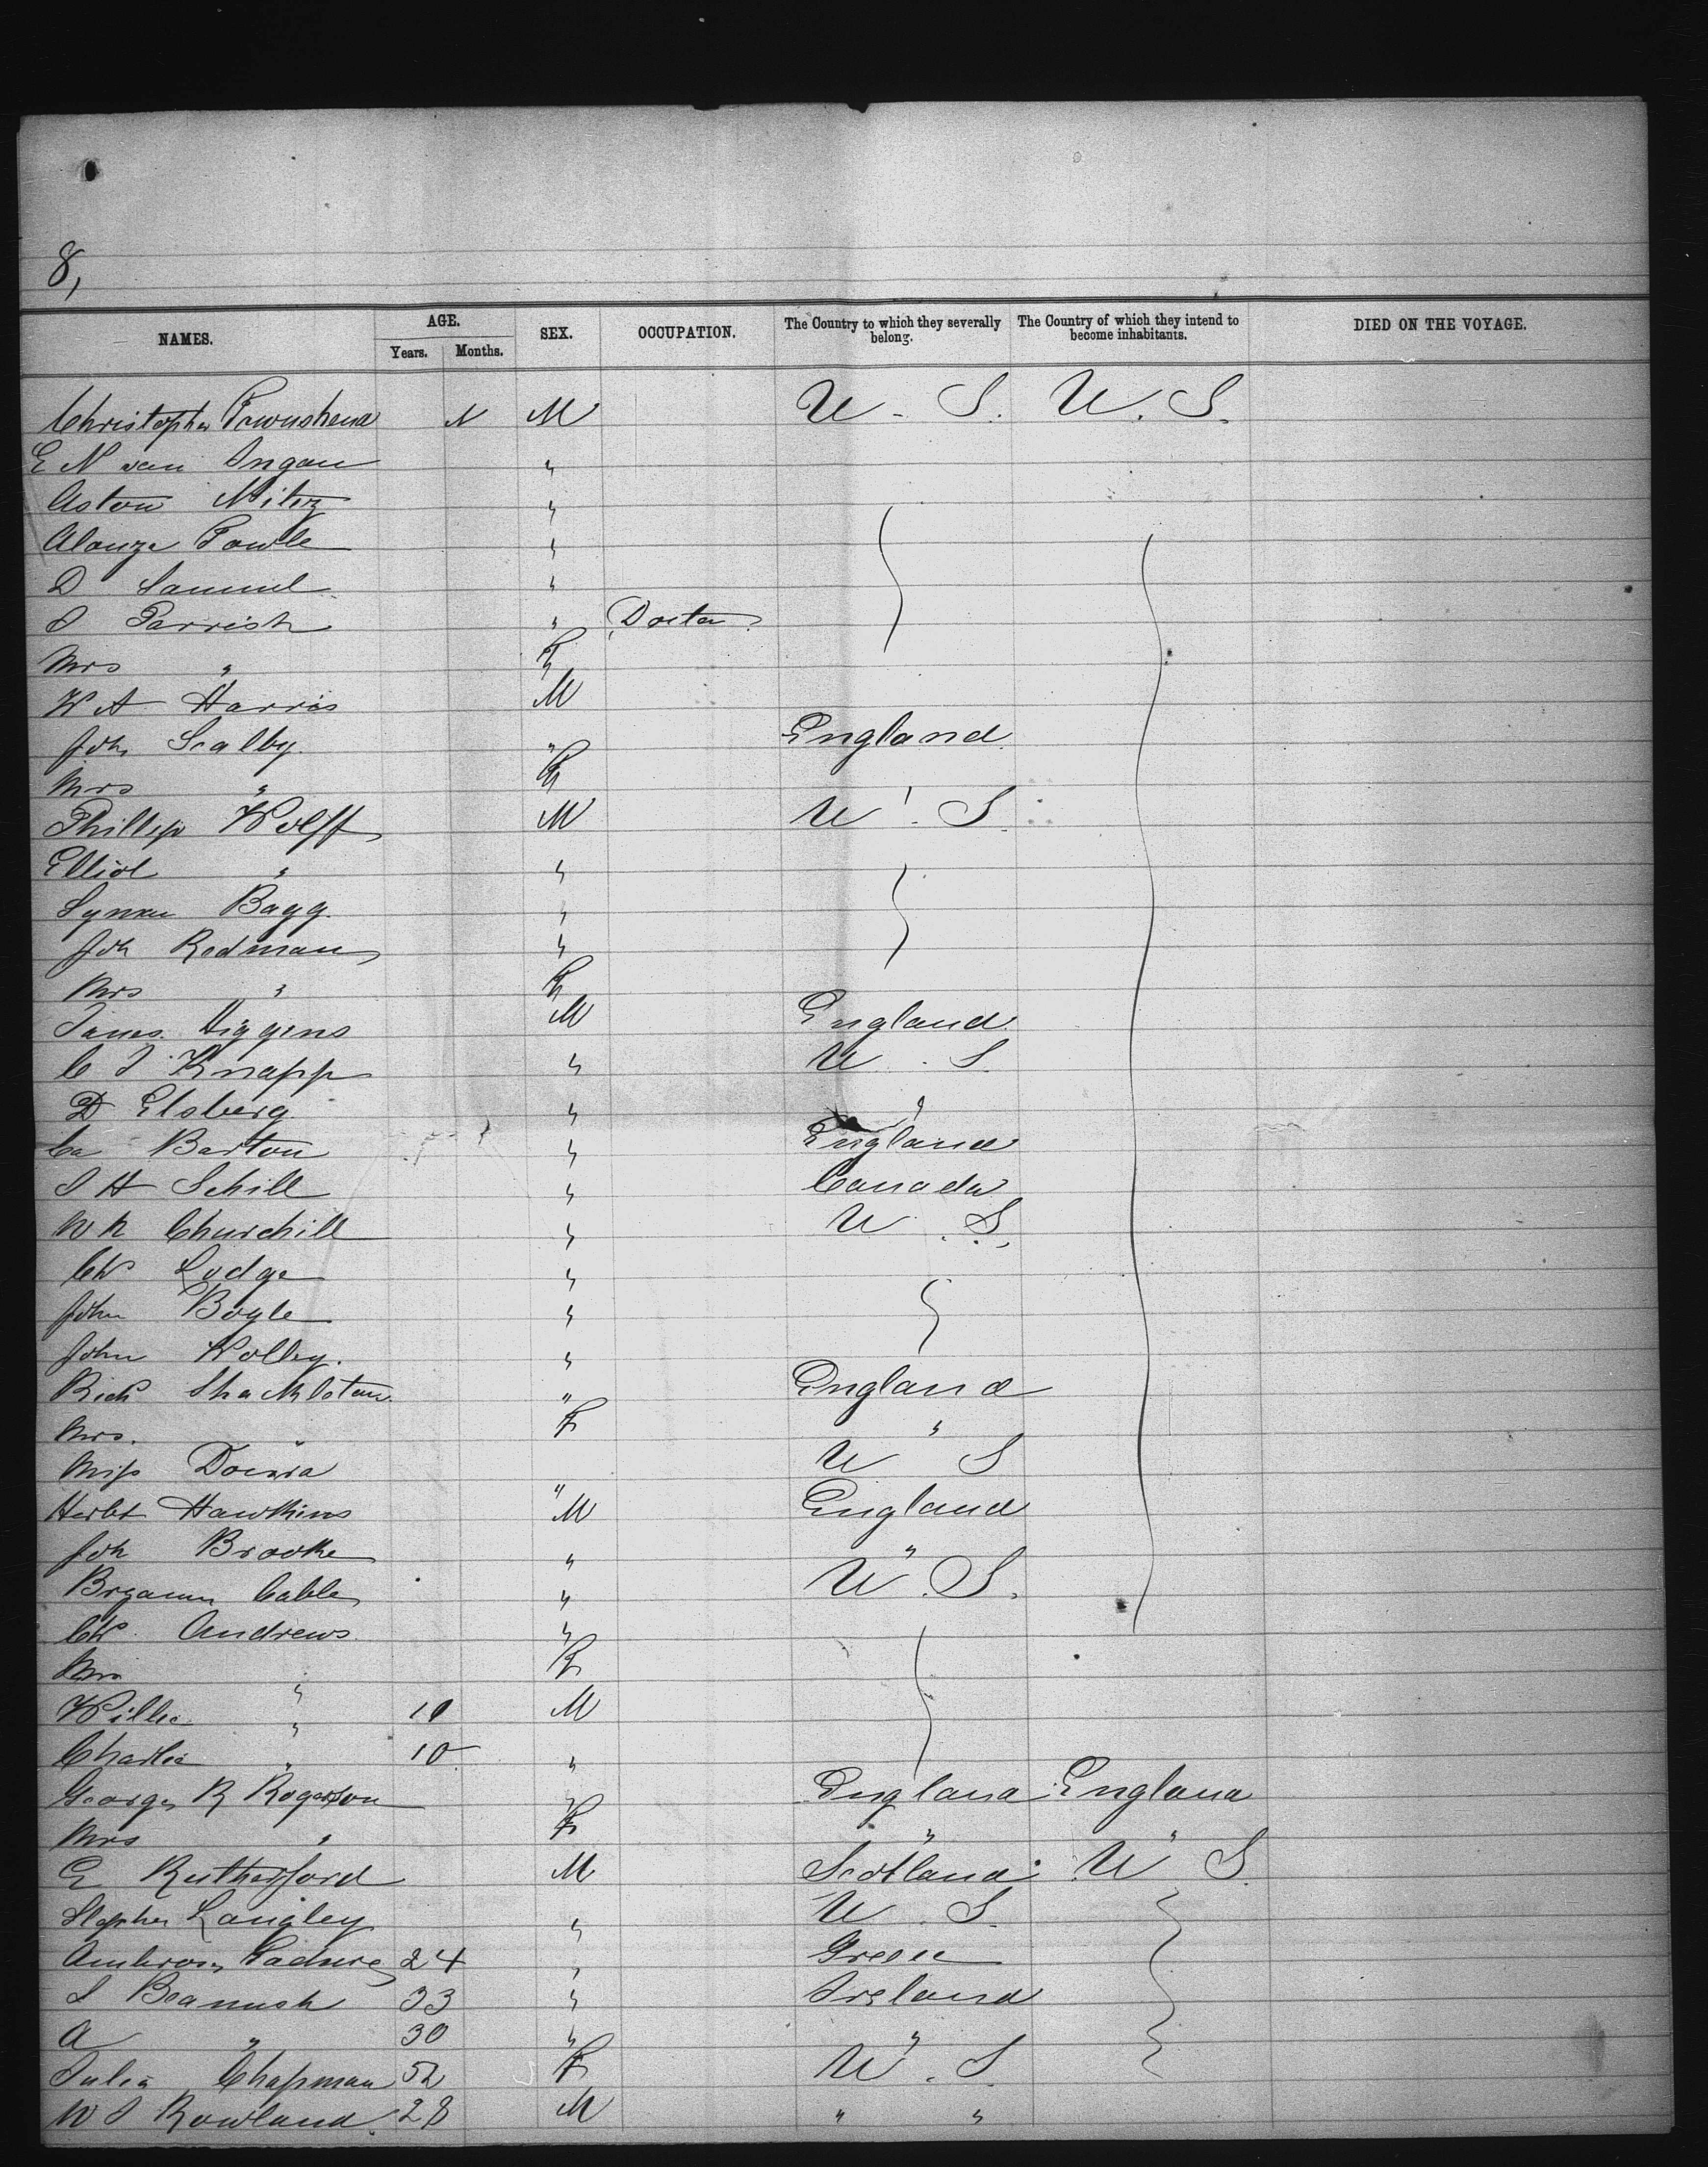 8,
NAMES. AGE. SEX. OCCUPATION. The Country to which they severally belong. The Country of which they intend to become inhabitants. DIED ON THE VOYAGE.
Years. Months.
Christopher M U. S. U. S.
E N van Ingan "
Aston "
Alonzo Towle "
D Samuel "
J Parrish " Doctor
Mrs " F
W A Harris M
Joh Scalby " England
Mrs " F
Phillip Wolff M U. S.
Elliot " "
Lyman Bagg "
Joh Redman "
Mrs " F
James Higgins M England
C J Knapp " U. S.
D Elsberg " "
Ca Barton " England
J H Schill " Canada
W R Churchill " U. S.
Ch Lodge "
John Boyle "
John Wolley. "
Rich Shackleton " England
Mrs. " F "
Miss " U S
Herbt Hawkins M England
Joh Brooke " "
Cable " U. S.
Ch Andrews "
Mrs " F
Willie " M
Charlie " 10 "
George R Rogerson " England England
Mrs " F " "
E Rutherford M Scotland U S
Stephen Langley " U. S.
24 " Greece
J Beamish 33 " Ireland
A " 30 " "
Julia Chapman 52 F U. S.
W J Rowland 28 M " "